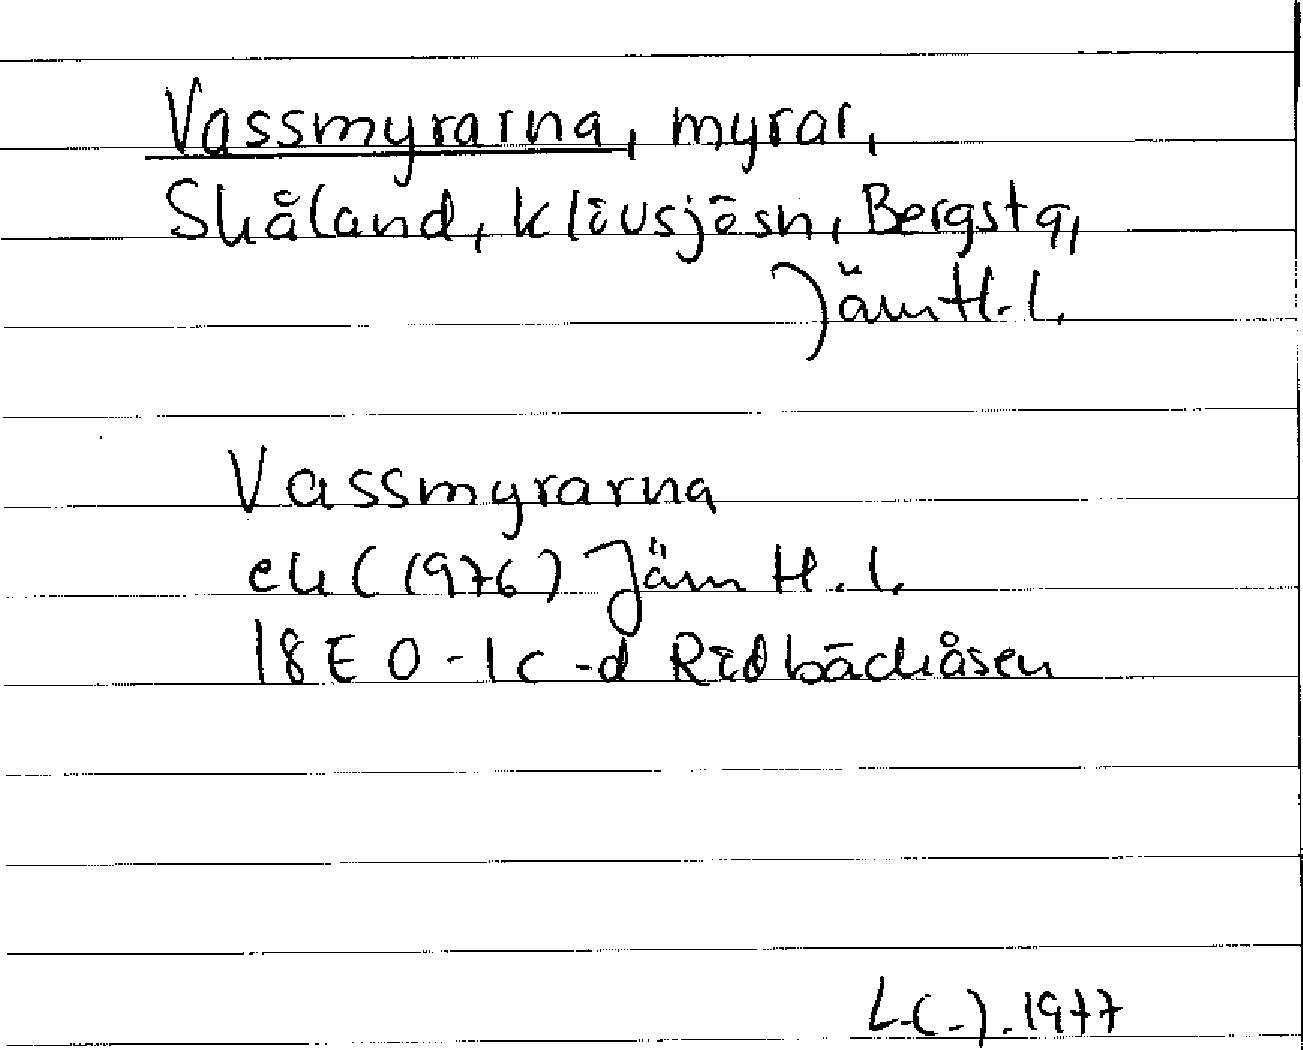 Vassmyrarna, myrar,
Skåland, Klövsjösn, Bergstq,
Jämtl.l.
Vassmyrarna
ek (1976) Jämtl.l.
18E 0-1c-d Rödbäckåsen
1977